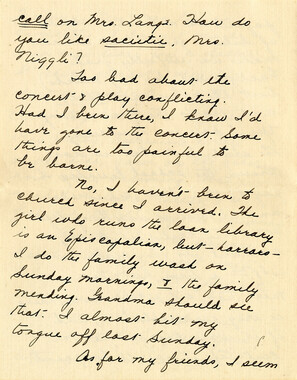 call on Mrs. Lange. How do
you like societie, Mrs.
Niggli?
Too bad about the
concert & play conflicting.
Had I been there, I know I'd
have gone to the concert. Some
things are too painful to
be borne.
No, I haven't been to
church since I arrived. The
girl who runs the loan library
is an Episcopalian, but—horrors—
I do the family wash on
Sunday mornings, & the family
mending. Grandma should see
that. I almost bit my
tongue off last Sunday.
As for my friends, I seem